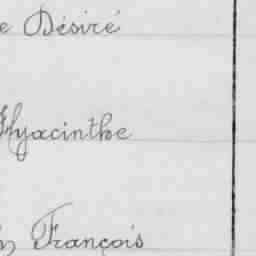 e Désiré
Hyacinthe
François